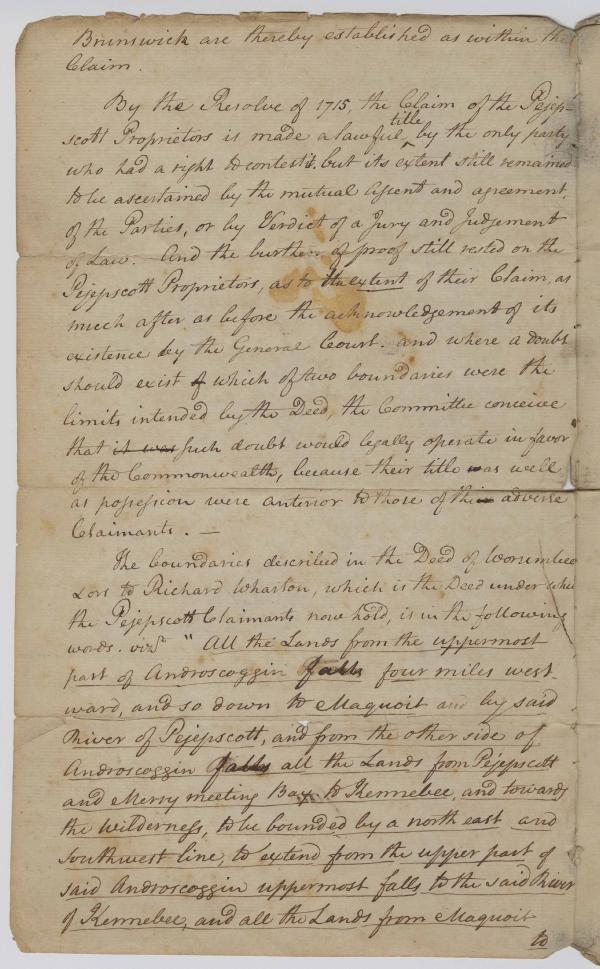 Brunswick are thereby established as within the
Claim.
By the Resolve of 1715 the Claim of the Pejep-
scott Proprietors is made a lawful title, by the only party
who had a right to contest it. but its extent still remained
to be ascertained by the mutual Assent and agreement,
of the Parties, or by Verdict of a Jury and Judgement
of Law. And the burthen of proof still rested on the
Pejepscott Proprietors, as to the extent of their Claim, as
much after as before the acknowledgement of its
existence by the General Court. and where a doubt
should exist of which of two boundaries were the
limits intended by the Deed, the Committee conceive
that it was such doubt would legally operate in favor
of the Commonwealth, because their title as well
as possession were anterior to those of the adverse
Claimants. —
The boundaries described in the Deed of Worumbee
&ors to Richard Wharton, which is the Deed under
the Pejepscott Claimants now hold, is in the following
words. vizt. "All the Lands from the uppermost
part of Androscoggin falls four miles west-
ward, and so down to Maquoit and by said
River of Pejepscott, and from the other side of
Androscoggin falls all the Lands from Pejepscott
and Merry meeting Bay to Kennebec, and towards
the wilderness, to be bounded by a north east and
Southwest line, to extend from the upper part of
said Androscoggin uppermost falls to the said River
of Kennebec, and all the Lands from Maquoit
to